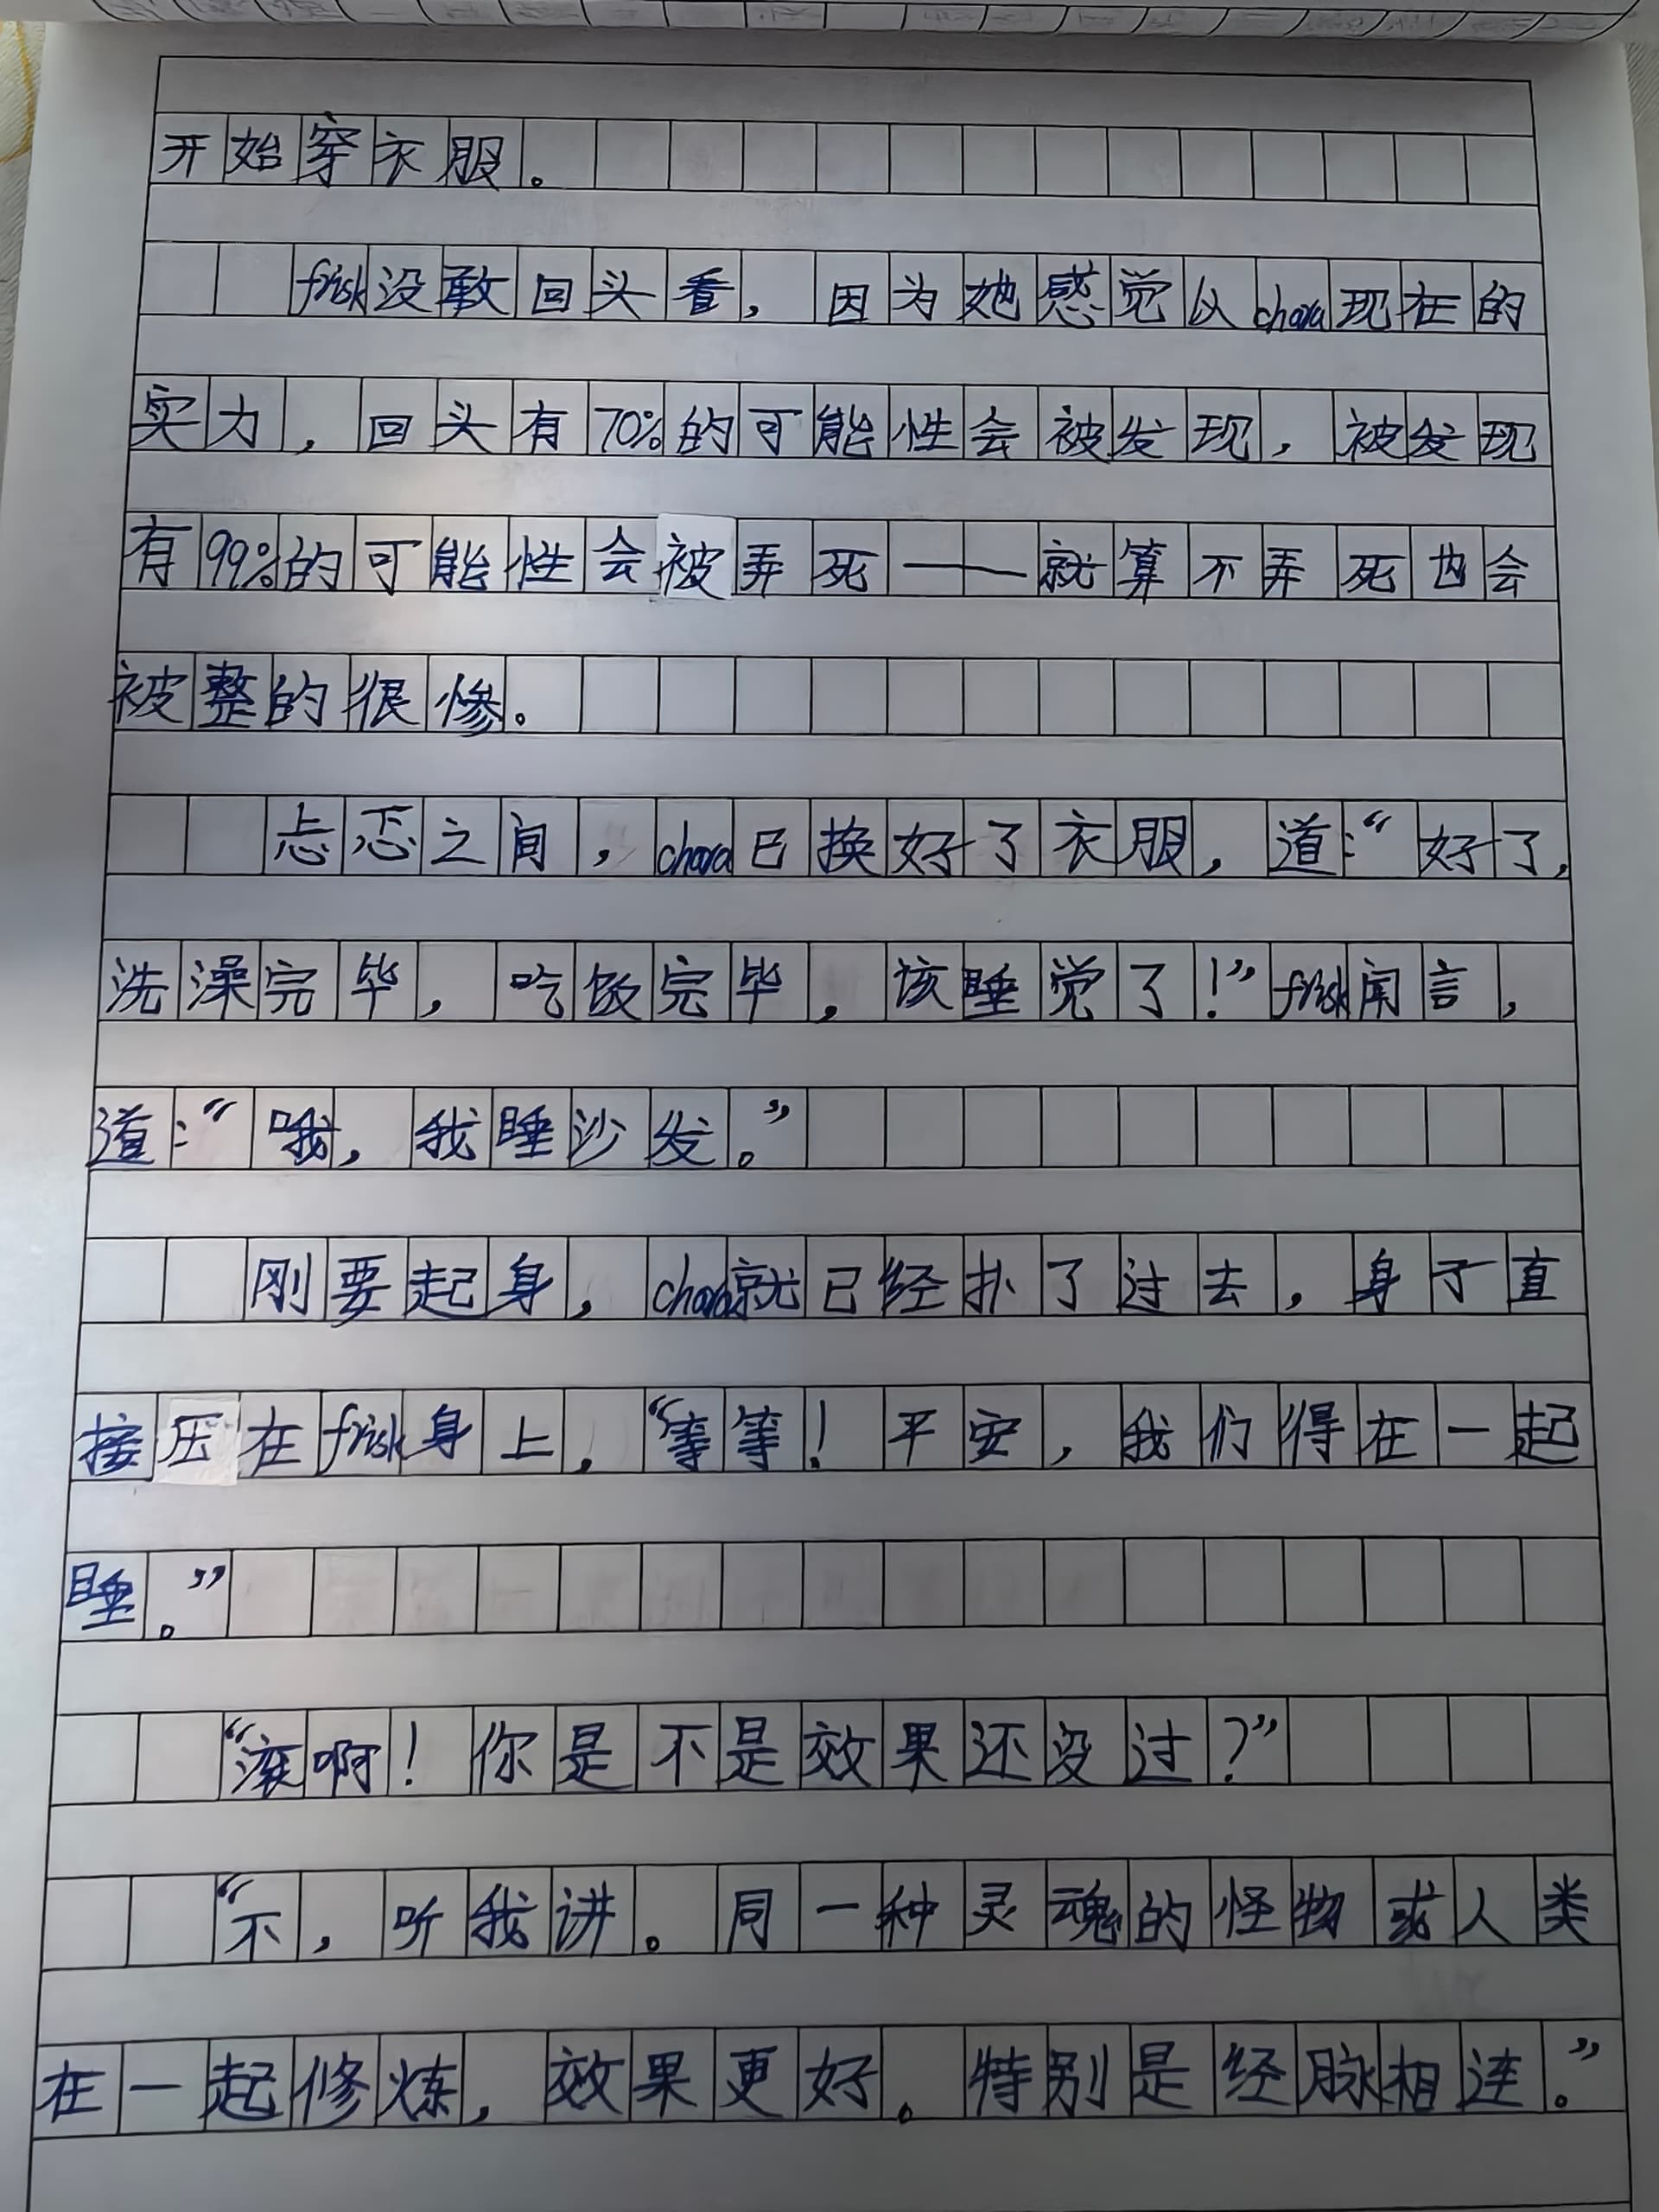 开始穿衣服。
frisk没敢回头看，因为她感觉以chara现在的
实力，回头有70%的可能性会被发现，被发现
有99%的可能性会被弄死——就算不弄死也会
被整的很惨。
忐忑之间，chara已换好了衣服，道：“好了，
洗澡完毕，吃饭完毕，该睡觉了！”frisk闻言，
道：“哦，我睡沙发。”
刚要起身，chara就已经扑了过去，身子直
接压在frisk身上，“等等！平安，我们得在一起
睡。”
“滚啊！你是不是效果还没过？”
“不，听我讲。同一种灵魂的怪物或人类
在一起修炼，效果更好。特别是经脉相连。”